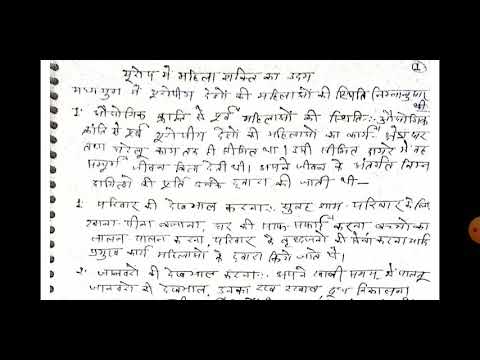 ①
यूरोप में महिला शक्ति का उदय
मध्ययुग में यूरोपीय देशों की महिलाओं की स्थिति निम्नानुसार थी
1. औद्योगिक क्रांति से पूर्व महिलाओं की स्थिति:- औद्योगिक
क्रांति से पूर्व यूरोपीय देशों की महिलाओं का कार्य क्षेत्र घर
तथा घरेलू काम तक ही सीमित था। इसी सीमित दायरे में वह
सम्पूर्ण जीवन बिता देती थी। अपने जीवन के अंतर्गत निम्न
दायित्वों की पूर्ति उनके द्वारा की जाती थी—
1. परिवार की देखभाल करना:- सुबह शाम परिवार के लिए
खाना-पीना बनाना, घर की साफ सफाई करना बच्चों का
लालन पालन करना, परिवार के वृद्धजनों की सेवा करना आदि
प्रमुख कार्य महिलाओं के द्वारा किये जाते थे।
2. जानवरों की देखभाल करना:- अपने खाली समय में पालतू
जानवरों की देखभाल, उनका रख रखाव दूध निकालना